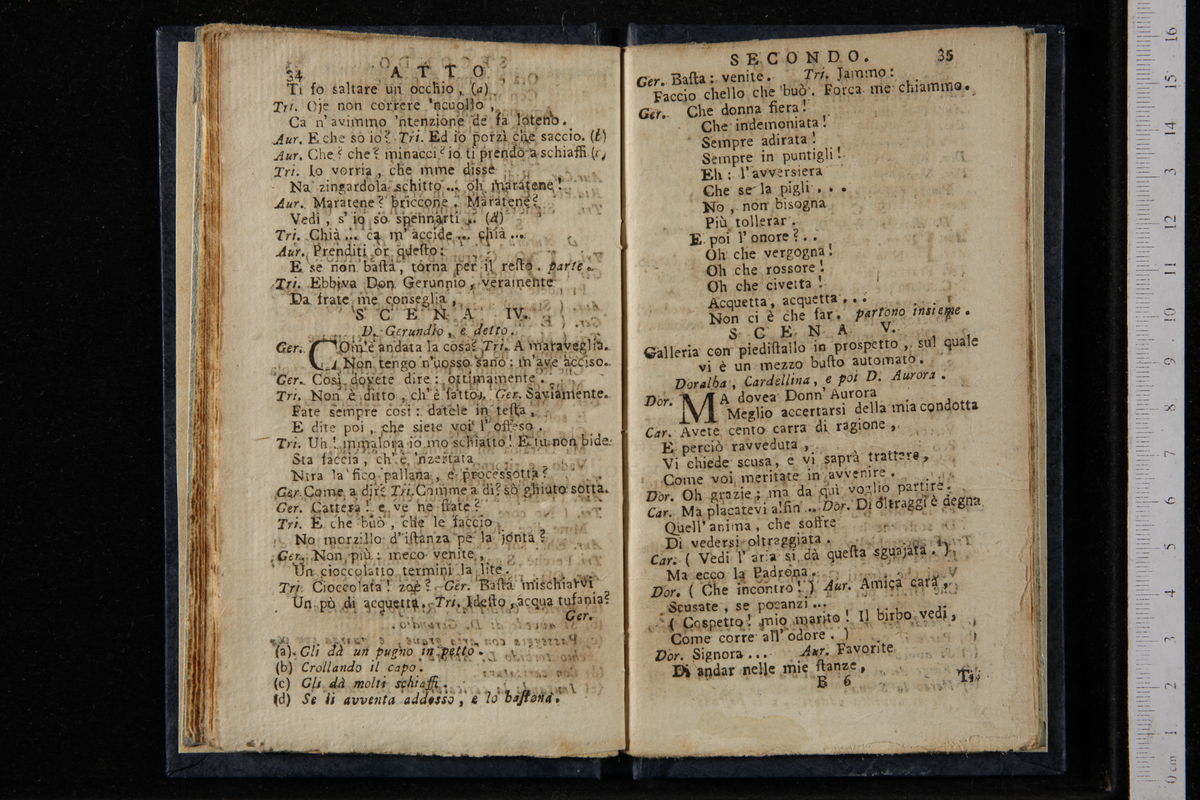 34 ATTO
Ti fo saltare un occhio, (a)
Tri. Oje non correre 'ncuollo,
Ca n'avimmo 'ntenzione de fa loteno.
Aur. E che so io? Tri. Ed io porzì che saccio. (b)
Aur. Che? che? minacci? io ti prendo a schiaffi (c)
Tri. Io vorria, che mme disse
Na zingardola schitto ... oh maratene!
Aur. Maratene? briccone. Maratene?
Vedi, s'io so spennarti .. (d)
Tri. Chià ... ca m'accide ... chià ...
Aur. Prenditi or questo:
E se non basta, torna per il resto. parte.
Tri. Ebbiva Don Gerunnio, veramente
Da frate me conseglia,
SCENA IV.
D. Gerundio, e detto.
Ger. COm'è andata la cosa? Tri. A maraveglia.
Non tengo n'uosso sano: m'ave acciso.
Ger. Così dovete dire: ottimamente.
Tri. Non è ditto, ch'è fatto. Ger. Saviamente.
Fate sempre così: datele in testa,
E dite poi, che siete voi l'offeso.
Tri. Uh! mmalora io mo schiatto! E tu non bide
Sta faccia, ch'è 'nzertata
Nira la fico pallana, e processotta?
Ger. Come a dir? Tri. Comme a dì? sò ghiuto sotta.
Ger. Cattera! e ve ne state?
Tri. E che buò, che le faccio
No morzillo d'istanza pe la jonta?
Ger. Non più: meco venite,
Un cioccolatto termini la lite.
Tri. Cioccolata! zoè? Ger. Basta mischiarvi
Un pò di acquetta. Tri. Idesto, acqua tufania?
Ger.
(a) Gli dà un pugno in petto.
(b) Crollando il capo.
(c) Gli dà molti schiaffi.
(d) Se li avventa addosso, e lo bastona.
SECONDO. 35
Ger. Basta: venite. Tri. Jammo:
Faccio chello che buò. Forca me chiammo.
Ger. Che donna fiera!
Che indemoniata!
Sempre adirata!
Sempre in puntigli!
Eh: l'avversiera
Che se la pigli ...
No, non bisogna
Più tollerar.
E poi l'onore? ..
Oh che vergogna!
Oh che rossore!
Oh che civetta!
Acquetta, acquetta ...
Non ci è che far. partono insieme.
SCENA V.
Galleria con piedistallo in prospetto, sul quale
vi è un mezzo busto automato.
Doralba, Cardellina, e poi D. Aurora.
Dor. MA dovea Donn'Aurora
Meglio accertarsi della mia condotta
Car. Avete cento carra di ragione,
E perciò ravveduta,
Vi chiede scusa, e vi saprà trattare,
Come voi meritate in avvenire.
Dor. Oh grazie; ma da qui voglio partire.
Car. Ma placatevi alfin .. Dor. Di oltraggi è degna
Quell'anima, che soffre
Di vedersi oltraggiata.
Car. ( Vedi l'aria si dà questa sguajata. )
Ma ecco la Padrona.
Dor. ( Che incontro! ) Aur. Amica cara,
Scusate, se pocanzi ...
( Cospetto! mio marito! Il birbo vedi,
Come corre all'odore. )
Dor. Signora ... Aur. Favorite
Di andar nelle mie stanze,
B 6